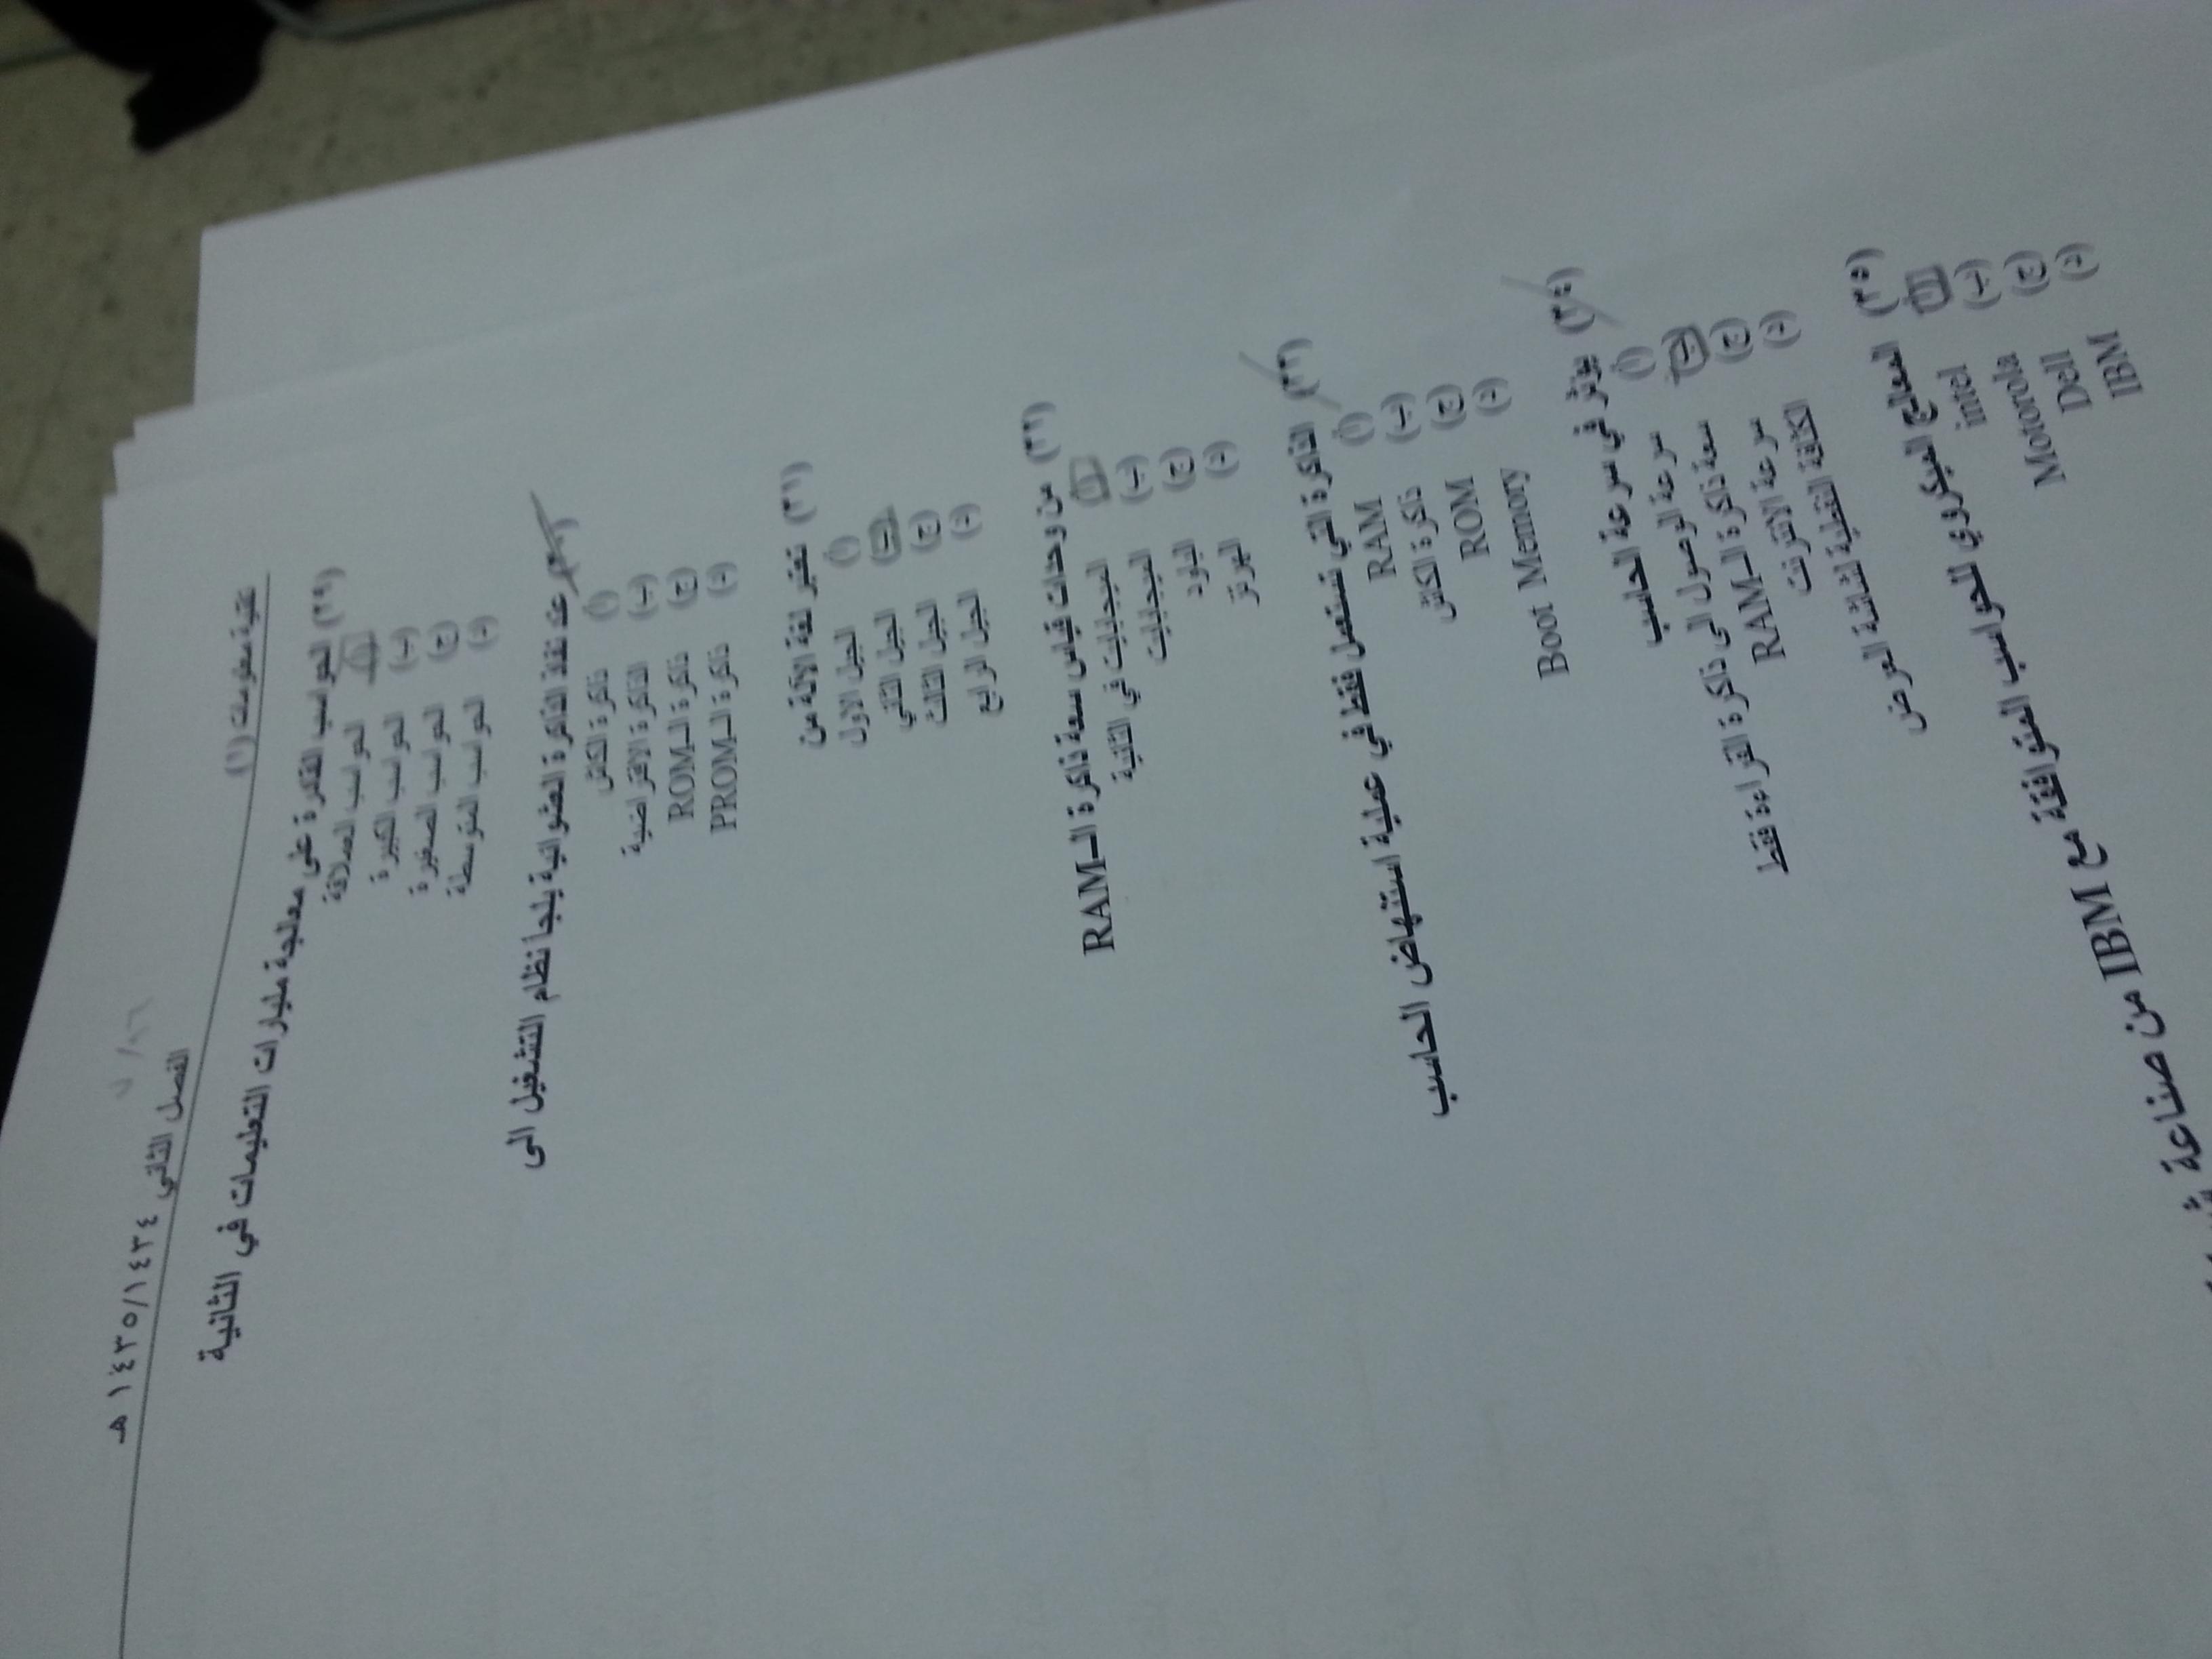 تقنية معلومات (١)
الفصل الثاني ١٤٣٥/١٤٣٤ هـ
(٢٩) الحواسيب القادرة على معالجة مليارات التعليمات في الثانية
(أ) الحواسيب العملاقة
(ب) الحواسيب الكبيرة
(ج) الحواسيب الصغيرة
(د) الحواسيب المتوسطة
(٣٠) عند نفاذ الذاكرة العشوائية يلجا نظام التشغيل الى
(أ) ذاكرة الكاش
(ب) الذاكرة الافتراضية
(ج) ذاكرة الـROM
(د) ذاكرة الـPROM
(٣١) تعتبر لغة الآلة من
(أ) الجيل الاول
(ب) الجيل الثاني
(ج) الجيل الثالث
(د) الجيل الرابع
(٣٢) من وحدات قياس سعة ذاكرة الـRAM
(أ) الميجابايت في الثانية
(ب) الميجابايت
(ج) الباود
(د) الهرتز
(٣٣) الذاكرة التي تستعمل فقط في عملية استنهاض الحاسب
(أ) RAM
(ب) ذاكرة الكاش
(ج) ROM
(د) Boot Memory
(٣٤) يؤثر في سرعة الحاسب
(أ) سرعة الوصول الى ذاكرة القراءة فقط
(ب) سعة ذاكرة الـRAM
(ج) سرعة الانترنت
(د) الكتلة النقطية لشاشة العرض
(٣٥) المعالج الميكروي للحواسيب المتوافقة مع IBM من صناعة
(أ) intel
(ب) Motorola
(ج) Dell
(د) IBM